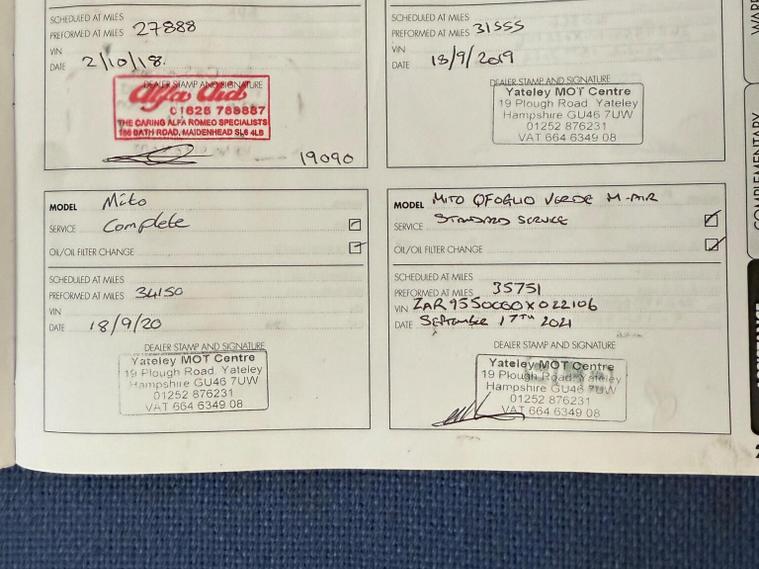 SCHEDULED AT MILES
PREFORMED AT MILES 27888
VIN
DATE 2/10/18.
DEALER STAMP AND SIGNATURE
Alfa Aid
01628 789887
THE CARING ALFA ROMEO SPECIALISTS
186 BATH ROAD, MAIDENHEAD SL6 4LB
19090
SCHEDULED AT MILES
PREFORMED AT MILES 31555
VIN
DATE 18/9/2019
DEALER STAMP AND SIGNATURE
Yateley MOT Centre
19 Plough Road Yateley
Hampshire GU46 7UW
01252 876231
VAT 664 6349 08
MODEL Mito
SERVICE Complete
OIL/OIL FILTER CHANGE
SCHEDULED AT MILES
PREFORMED AT MILES 34150
VIN
DATE 18/9/20
DEALER STAMP AND SIGNATURE
Yateley MOT Centre
19 Plough Road, Yateley
Hampshire GU46 7UW
01252 876231
VAT 664 6349 08
MODEL MITO QFOGLIO VERDE M-AIR
SERVICE STANDARD SERVICE
OIL/OIL FILTER CHANGE
SCHEDULED AT MILES
PREFORMED AT MILES 35751
VIN ZAR9550000X022106
DATE SEPTEMBER 17TH 2021
DEALER STAMP AND SIGNATURE
Yateley MOT Centre
19 Plough Road, Yateley
Hampshire GU46 7UW
01252 876231
VAT 664 6349 08
COMPLEMENTARY